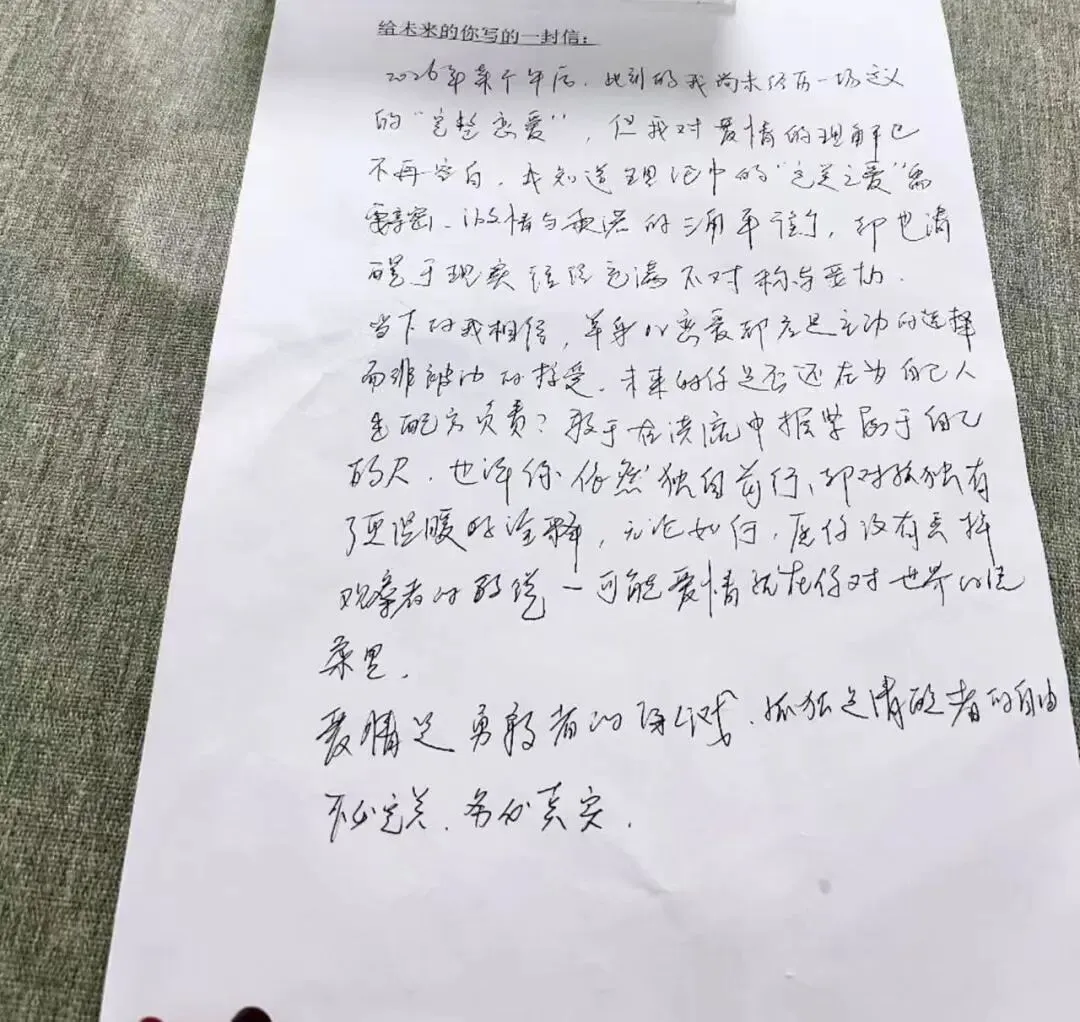 给未来的你写的一封信：
2026年某个午后，此刻的我尚未经历一场定义
的“完整恋爱”，但我对爱情的理解已
不再空白，我知道理论中的“完美之爱”需
要亲密、激情与承诺的三角平衡，却也清
醒于现实往往充满不对称与妥协.
当下的我相信，单身以恋爱都应是主动的选择
而非被动的接受. 未来的你是否还在为自己人
生配方负责？敢于在洪流中掌属于自己
的尺. 也许你依然独自前行，却对孤独有
了更温暖的诠释，无论如何，愿你没有丢掉
观察者的 一可能爱情就在你对世界的
里.
爱情是勇敢者的游戏、孤独是清醒者的自由
不必完美、务必真实.